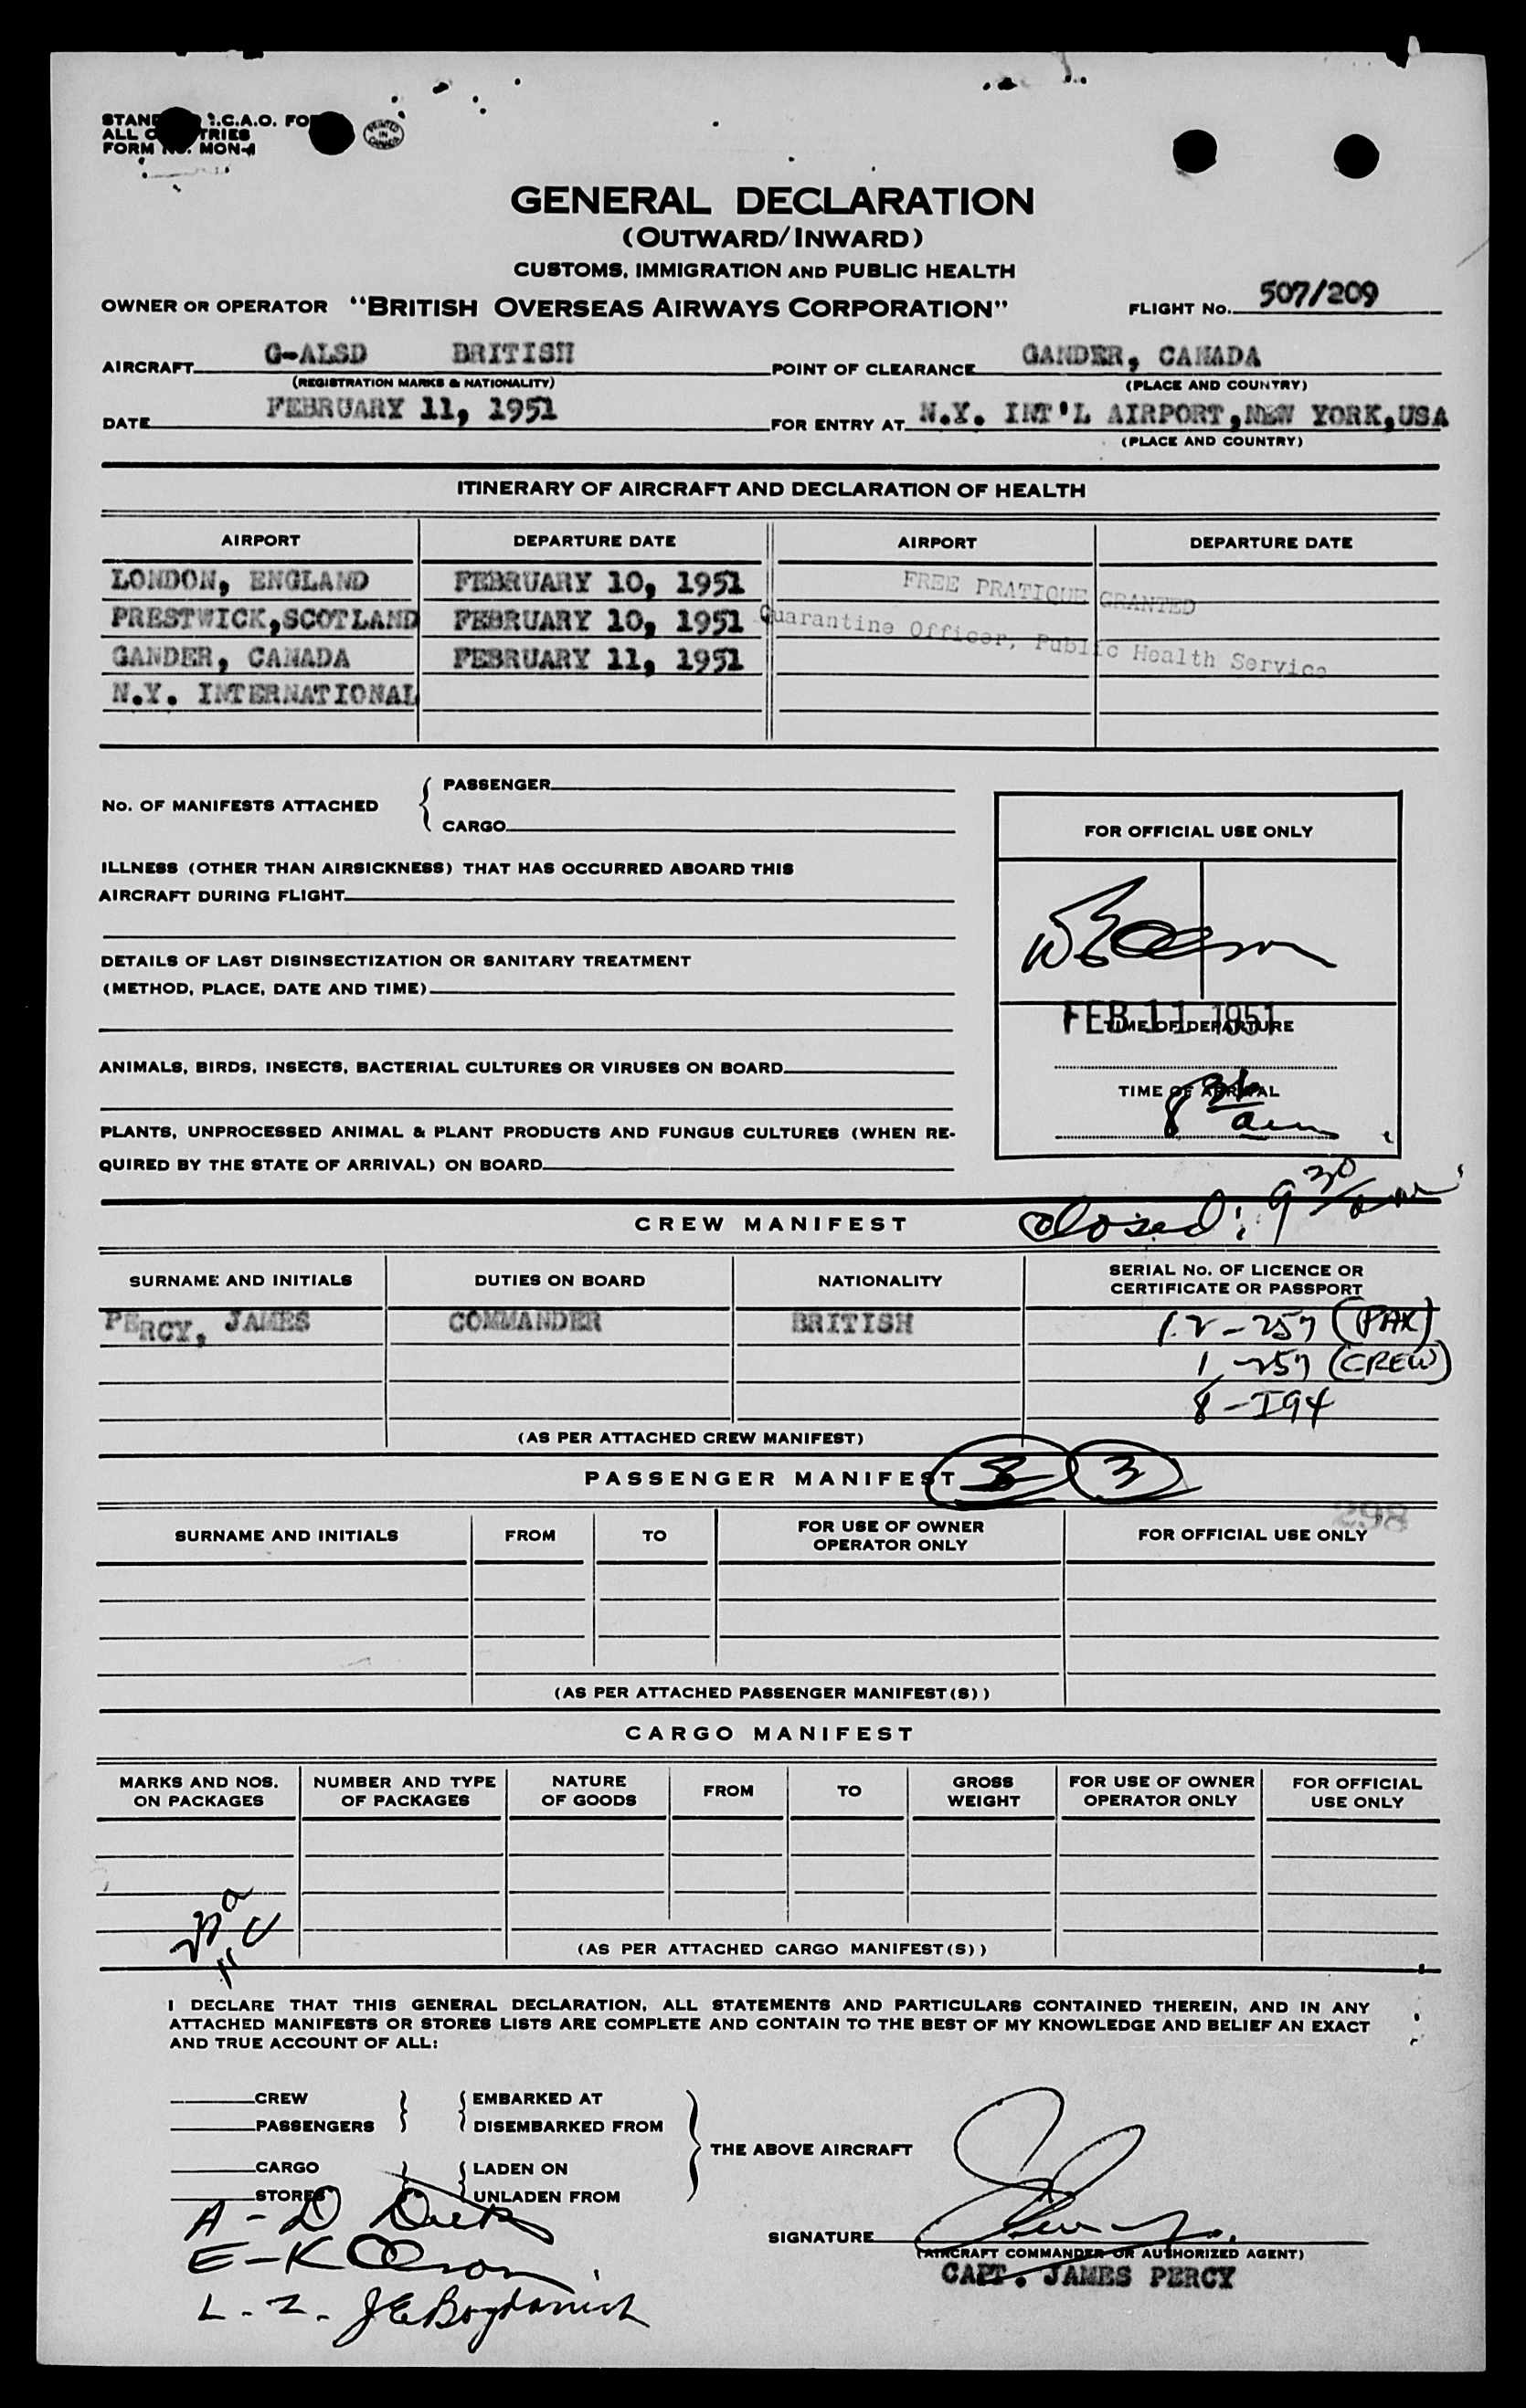 STAND I.C.A.O. FO
ALL C TRIES
FORM NO. MON-1
PRINTED IN CANADA
GENERAL DECLARATION
(OUTWARD/INWARD)
CUSTOMS, IMMIGRATION AND PUBLIC HEALTH
OWNER OR OPERATOR "BRITISH OVERSEAS AIRWAYS CORPORATION" FLIGHT No. 507/209
AIRCRAFT G-ALSD BRITISH POINT OF CLEARANCE GANDER, CANADA
(REGISTRATION MARKS & NATIONALITY) (PLACE AND COUNTRY)
DATE FEBRUARY 11, 1951 FOR ENTRY AT N.Y. INT'L AIRPORT, NEW YORK, USA
(PLACE AND COUNTRY)
ITINERARY OF AIRCRAFT AND DECLARATION OF HEALTH
AIRPORT DEPARTURE DATE AIRPORT DEPARTURE DATE
LONDON, ENGLAND FEBRUARY 10, 1951 FREE PRATIQUE GRANTED
PRESTWICK, SCOTLAND FEBRUARY 10, 1951 Quarantine Officer, Public Health Service
GANDER, CANADA FEBRUARY 11, 1951
N.Y. INTERNATIONAL
No. OF MANIFESTS ATTACHED { PASSENGER
CARGO
FOR OFFICIAL USE ONLY
ILLNESS (OTHER THAN AIRSICKNESS) THAT HAS OCCURRED ABOARD THIS
AIRCRAFT DURING FLIGHT
DETAILS OF LAST DISINSECTIZATION OR SANITARY TREATMENT
(METHOD, PLACE, DATE AND TIME)
FEB 11 1951
TIME OF DEPARTURE
ANIMALS, BIRDS, INSECTS, BACTERIAL CULTURES OR VIRUSES ON BOARD
TIME OF ARRIVAL
8 am
PLANTS, UNPROCESSED ANIMAL & PLANT PRODUCTS AND FUNGUS CULTURES (WHEN RE-
QUIRED BY THE STATE OF ARRIVAL) ON BOARD
CREW MANIFEST closed: 9 30/am
SURNAME AND INITIALS DUTIES ON BOARD NATIONALITY SERIAL No. OF LICENCE OR
CERTIFICATE OR PASSPORT
PERCY, JAMES COMMANDER BRITISH 12-257 (PAX)
1-257 (CREW)
8-I94
(AS PER ATTACHED CREW MANIFEST)
PASSENGER MANIFEST 3
298
SURNAME AND INITIALS FROM TO FOR USE OF OWNER
OPERATOR ONLY FOR OFFICIAL USE ONLY
(AS PER ATTACHED PASSENGER MANIFEST(S))
CARGO MANIFEST
MARKS AND NOS.
ON PACKAGES NUMBER AND TYPE
OF PACKAGES NATURE
OF GOODS FROM TO GROSS
WEIGHT FOR USE OF OWNER
OPERATOR ONLY FOR OFFICIAL
USE ONLY
(AS PER ATTACHED CARGO MANIFEST(S))
I DECLARE THAT THIS GENERAL DECLARATION, ALL STATEMENTS AND PARTICULARS CONTAINED THEREIN, AND IN ANY
ATTACHED MANIFESTS OR STORES LISTS ARE COMPLETE AND CONTAIN TO THE BEST OF MY KNOWLEDGE AND BELIEF AN EXACT
AND TRUE ACCOUNT OF ALL:
CREW } { EMBARKED AT
PASSENGERS DISEMBARKED FROM
THE ABOVE AIRCRAFT
CARGO } { LADEN ON
STORES UNLADEN FROM
A - D Dick
E - K Olson
L - Z - J E Bogdanich
SIGNATURE
(AIRCRAFT COMMANDER OR AUTHORIZED AGENT)
CAPT. JAMES PERCY